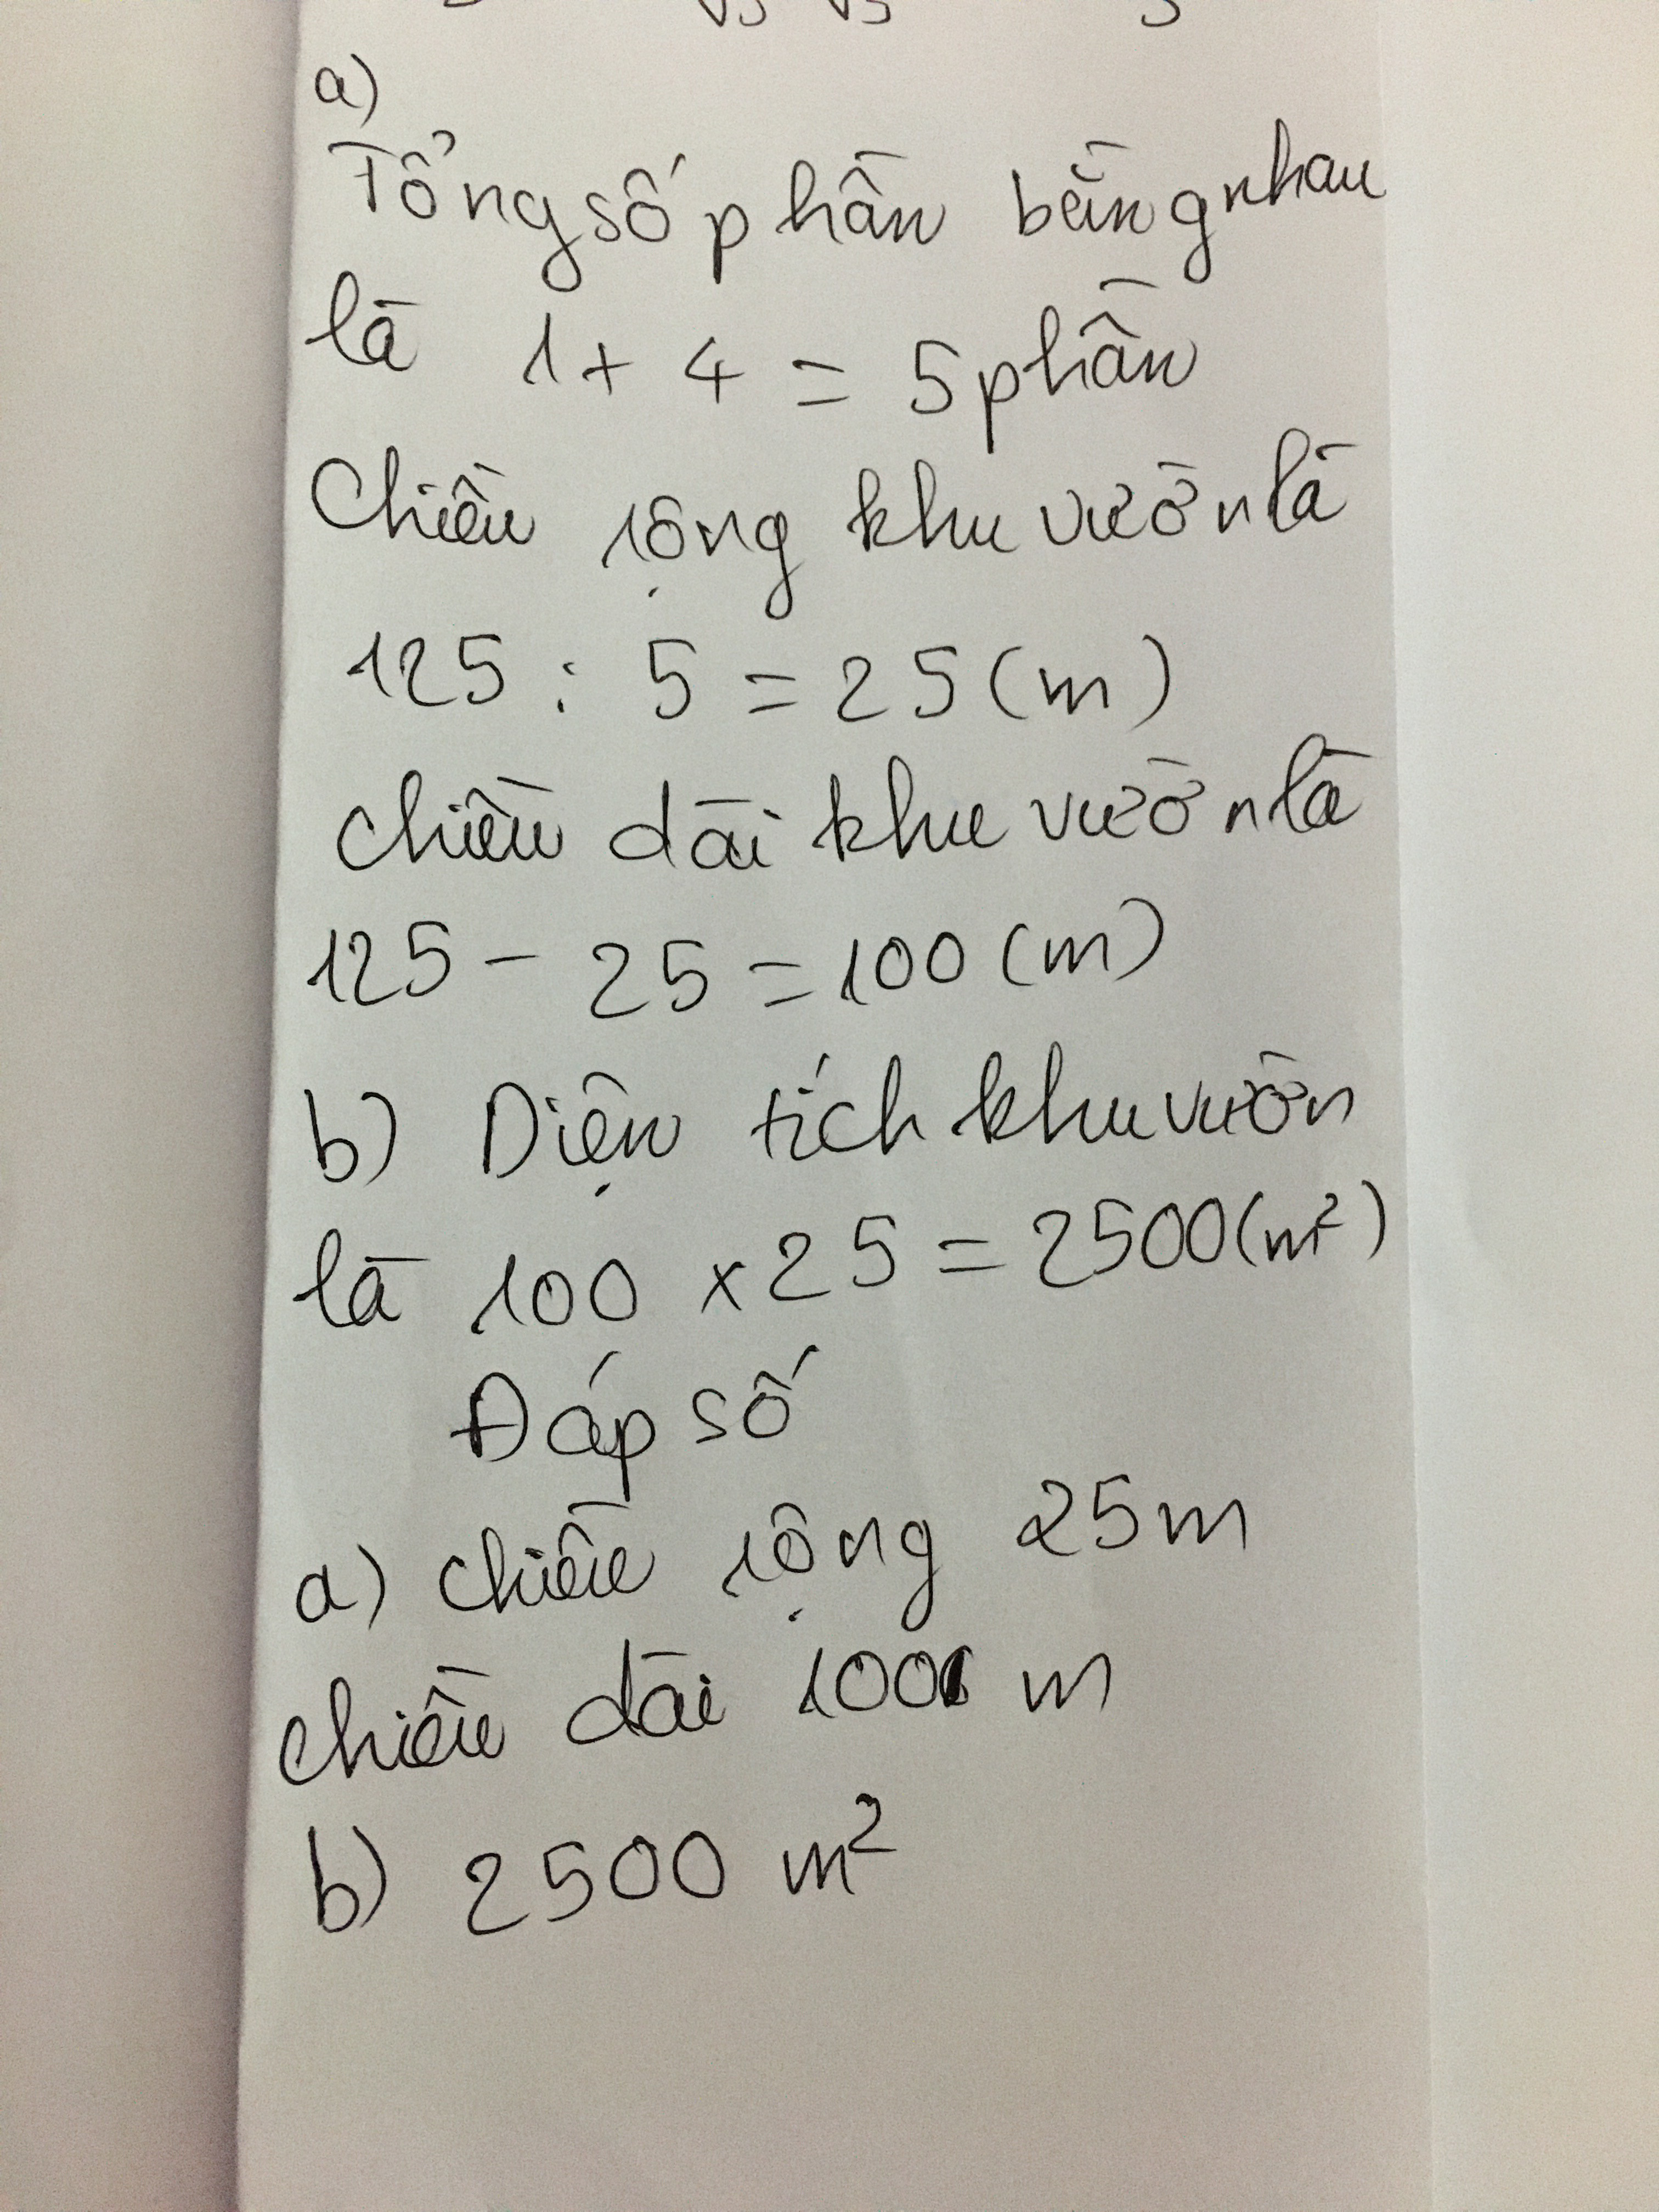 a)
Tổng số phần bằng nhau
là 1 + 4 = 5 phần
Chiều rộng khu vườn là
125 : 5 = 25 (m)
Chiều dài khu vườn là
125 - 25 = 100 (m)
b) Diện tích khu vườn
là 100 x 25 = 2500 (m²)
Đáp số
a) chiều rộng 25 m
chiều dài 100 m
b) 2500 m²